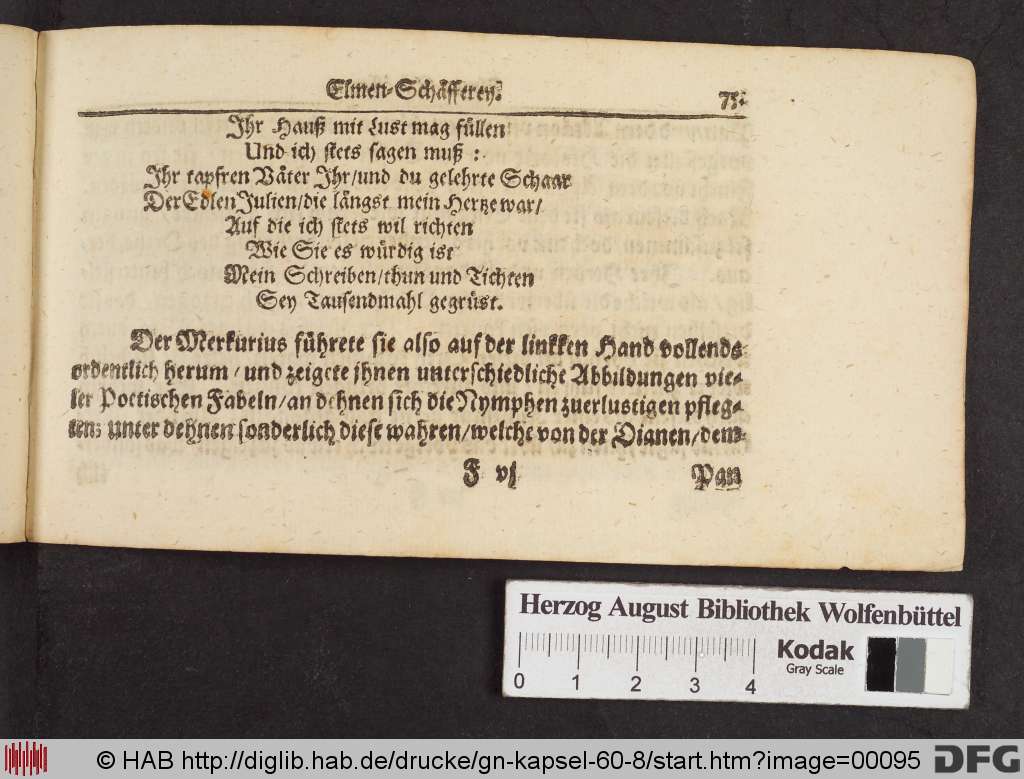 Elmen-Schäfferey. 75.
Ihr Hauß mit Lust mag füllen
Und ich stets sagen muß :
Ihr tapfren Väter Ihr/und du gelehrte Schaar
Der Edlen Julien/die längst mein Hertze war/
Auf die ich stets wil richten
Wie Sie es würdig ist
Mein Schreiben/thun und Tichten
Sey Tausendmahl gegrüst.
Der Merkurius führete sie also auf der linkken Hand vollends
ordentlich herum/und zeigete ihnen unterschiedliche Abbildungen vie-
ler Poetischen Fabeln/an dehnen sich die Nymphen zuerlustigen pfleg-
ten: unter dehnen sonderlich diese wahren/welche von der Dianen/dem
F vj Pan
Herzog August Bibliothek Wolfenbüttel
Kodak
Gray Scale
0 1 2 3 4
© HAB http://diglib.hab.de/drucke/gn-kapsel-60-8/start.htm?image=00095 DFG